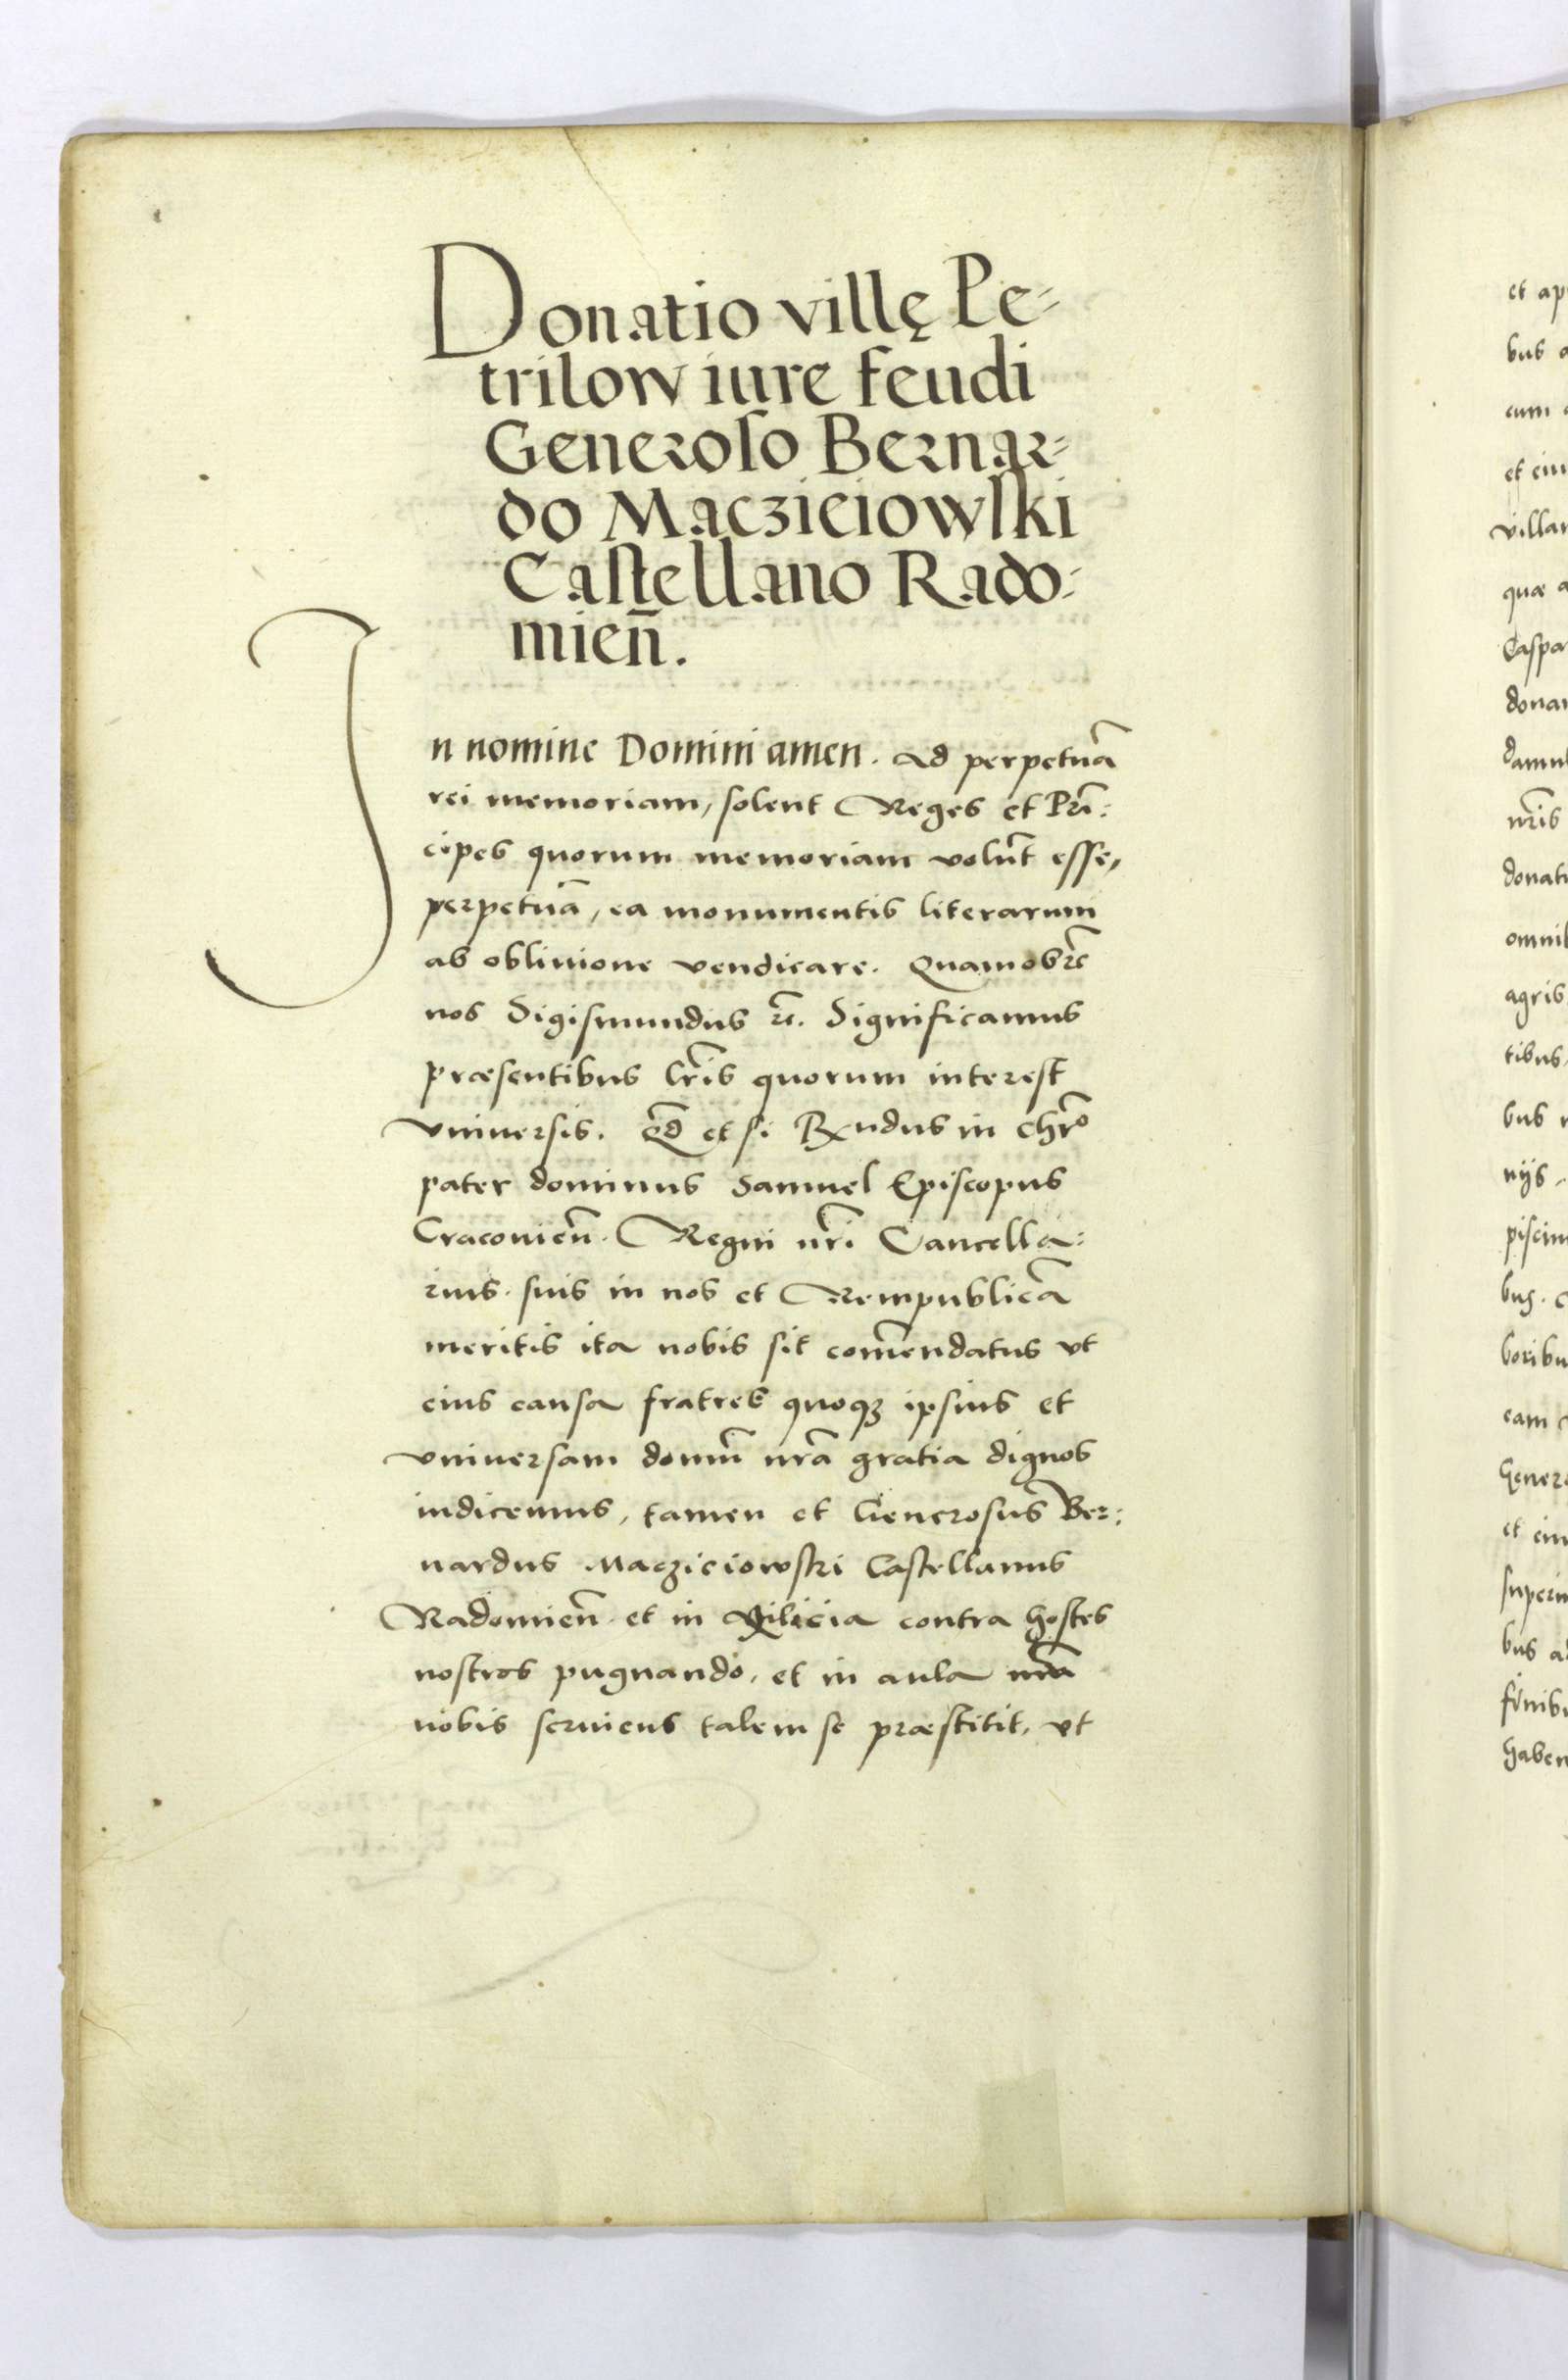 Donatio villę Pe-
trilow iure feudi
Generoso Bernar-
do Macziciowski
Castellano Rado-
mien̄.
In nomine Domini amen. Ad perpetuā
rei memoriam, solent Reges et Prī:
cipes quorum memoriam volūt esse,
perpetuā, ea monumentis literarum
ab obliuione vendicare. Quamobrē
nos Sigismundus rc̄. Significamus
præsentibus lr̄is quorum interest
vniuersis. qd̄ et si Rx̄ndus in chr̄o
pater dominus Samuel Episcopus
Cracouien̄. Regni nr̄i Cancella:
rius. suis in nos et Rempublicā
meritis ita nobis sit com̄endatus vt
eius causa fratres quoqȝ ipsius et
vniuersam domū nr̄a gratia dignos
iudicemus, tamen et Generosus Ber:
nardus Macziciowski Castellanus
Radomien̄. et in contra hostes
nostros pugnando, et in aula nr̄a
nobis seruiens talem se præstitit, vt
et ap
bus a
cum
et eiu
villam
quæ a
Caspa
donau
damu
nr̄is
donati
omnib
agris
tibus,
bus
nijs.
piscin
bus. c
boribu
eam
Genero
et eiu
superin
bus ad
finibu
haben